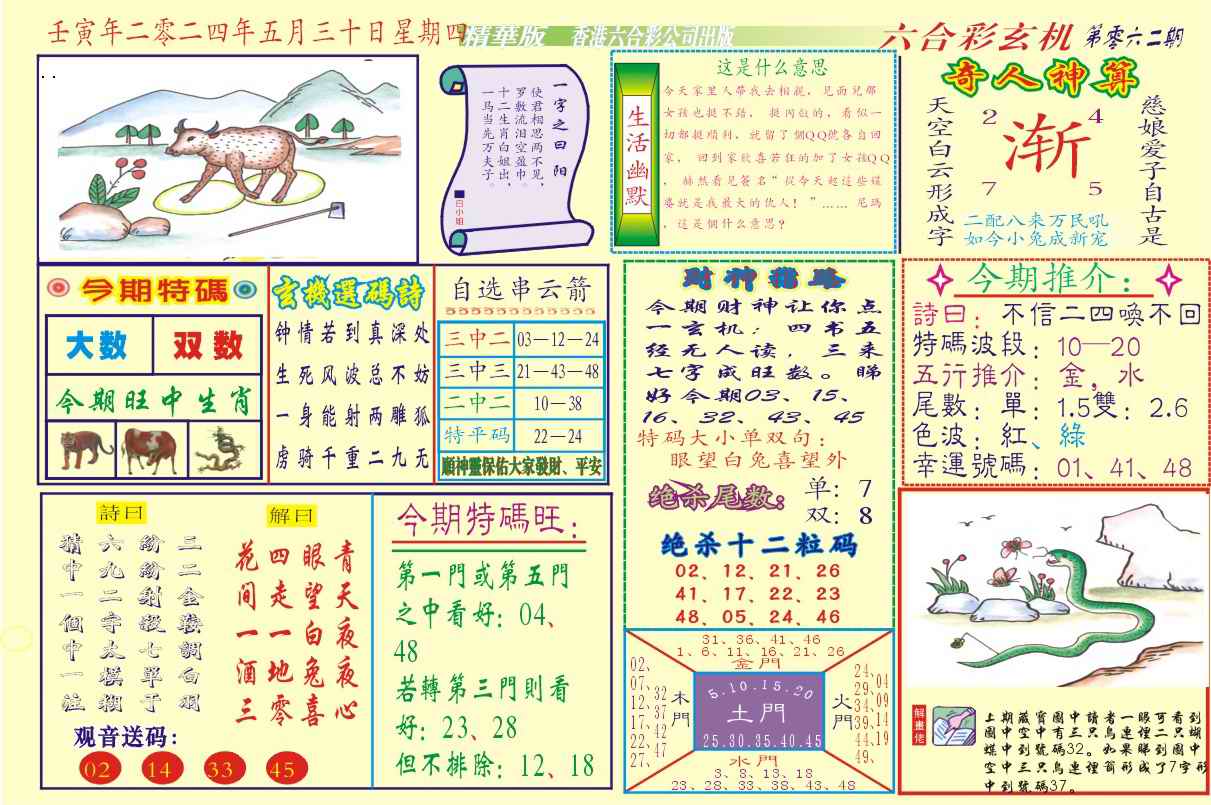 壬寅年二零二四年五月三十日星期四
精華版 香港六合彩公司出版
六合彩玄机 第零六二期
一字之曰 阳
使君相思两不见，
罗敷流泪空盈巾。
十二生肖白姐出，
一马当先万夫子。
白小姐
生活幽默
这是什么意思
今天家里人帶我去相親， 见面兒那
女孩也挺不踏， 挺闪似的，看似一
切都挺順利，就留了個QQ號各自回
家， 回到家欣喜若狂的加了女孩QQ
， 赫然看见簽名"從今天起這些媒
婆就是我最大的仇人！ "…… 尼瑪
，這是個什么意思？
奇人神算
天空白云形成字
2 4
渐
7 5
慈娘爱子自古是
二配八来万民吼
如今小兔成新宠
今期特碼
大数 双数
今期旺中生肖
玄機選碼詩
钟情若到真深处
生死风波总不妨
一身能射两雕狐
虏骑千重二九无
自选串云箭
三中二 03—12—24
三中三 21—43—48
二中二 10—38
特平码 22—24
順神靈保佑大家發財、平安
財神指略
今期财神让你点
一玄机：四书五
经无人读，三来
七字成旺数。睇
好今期03、15、
16、32、43、45
特码大小单双句：
眼望白兔喜望外
绝杀尾数： 单：7
双：8
绝杀十二粒码
02、12、21、26
41、17、22、23
48、05、24、46
今期推介：
詩曰：不信二四喚不回
特碼波段：10—20
五行推介：金，水
尾數：單：1.5雙：2.6
色波：紅、綠
幸運號碼：01、41、48
詩曰
二二金鞍調白羽
紛紛射殺七單于
六九二字太模糊
猜中一個中一注
解曰
青天夜夜心
眼望白兔喜
四走一地零
花间一酒三
观音送码：
02 14 33 45
今期特碼旺：
第一門或第五門
之中看好：04、
48
若轉第三門則看
好：23、28
但不排除：12、18
31、36、41、46
1、6、11、16、21、26
金門
02、
07、32
12、37
17、42
22、47
27、
木門
5.10.15.20
土門
25.30.35.40.45
火門
24、
29、04
34、09
39、14
44、19
49、
水門
3、8、13、18
23、28、33、38、43、48
解畫佬
上期藏寶圖中讀者一眼可看到
圖中空中有三只鳥連裡二只蝴
蝶中到號碼32。如果睇到圖中
空中三只鳥連裡箭形成了7字形
中到號碼37。